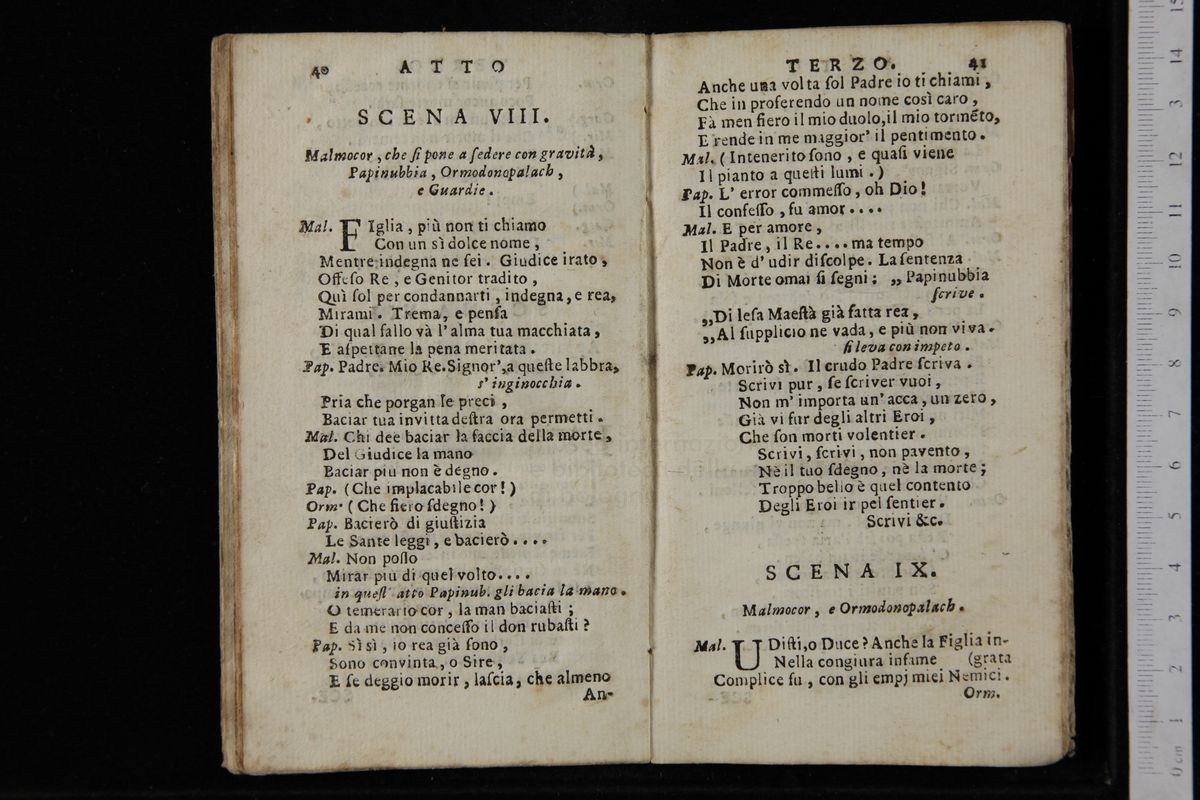 40 ATTO
SCENA VIII.
Malmocor, che ſi pone a ſedere con gravità,
Papinubbia, Ormodonopalach,
e Guardie.
Mal. FIglia, più non ti chiamo
Con un sì dolce nome,
Mentre indegna ne ſei. Giudice irato,
Offeſo Re, e Genitor tradito,
Quì ſol per condannarti, indegna, e rea,
Mirami. Trema, e penſa
Di qual fallo và l'alma tua macchiata,
E aſpettane la pena meritata.
Pap. Padre. Mio Re. Signor', a queſte labbra,
s' inginocchia.
Pria che porgan le preci,
Baciar tua invitta deſtra ora permetti.
Mal. Chi dee baciar la faccia della morte,
Del Giudice la mano
Baciar più non è degno.
Pap. (Che implacabile cor!)
Orm. (Che fiero ſdegno!)
Pap. Bacierò di giuſtizia
Le Sante leggi, e bacierò....
Mal. Non poſſo
Mirar più di quel volto....
in queſt' atto Papinub. gli bacia la mano.
O temerario cor, la man baciaſti;
E da me non conceſſo il don rubaſti?
Pap. Sì sì, io rea già ſono,
Sono convinta, o Sire,
E ſe deggio morir, laſcia, che almeno
An-
TERZO. 41
Anche una volta ſol Padre io ti chiami,
Che in proferendo un nome così caro,
Fà men fiero il mio duolo, il mio torméto,
E rende in me maggior' il pentimento.
Mal. (Intenerito ſono, e quaſi viene
Il pianto a queſti lumi.)
Pap. L' error commeſſo, oh Dio!
Il confeſſo, fu amor....
Mal. E per amore,
Il Padre, il Re.... ma tempo
Non è d' udir diſcolpe. La ſentenza
Di Morte omai ſi ſegni: „ Papinubbia
ſcrive.
„Di leſa Maeſtà già fatta rea,
„Al ſupplicio ne vada, e più non viva.
ſi leva con impeto.
Pap. Morirò sì. Il crudo Padre ſcriva.
Scrivi pur, ſe ſcriver vuoi,
Non m' importa un' acca, un zero,
Già vi fur degli altri Eroi,
Che ſon morti volentier.
Scrivi, ſcrivi, non pavento,
Nè il tuo ſdegno, nè la morte;
Troppo bello è quel contento
Degli Eroi ir pel ſentier.
Scrivi &c.
SCENA IX.
Malmocor, e Ormodonopalach.
Mal. UDiſti, o Duce? Anche la Figlia in-
Nella congiura infame (grata
Complice fu, con gli empj miei Nemici.
Orm.
0 cm 1 2 3 4 5 6 7 8 9 10 11 12 13 14 15